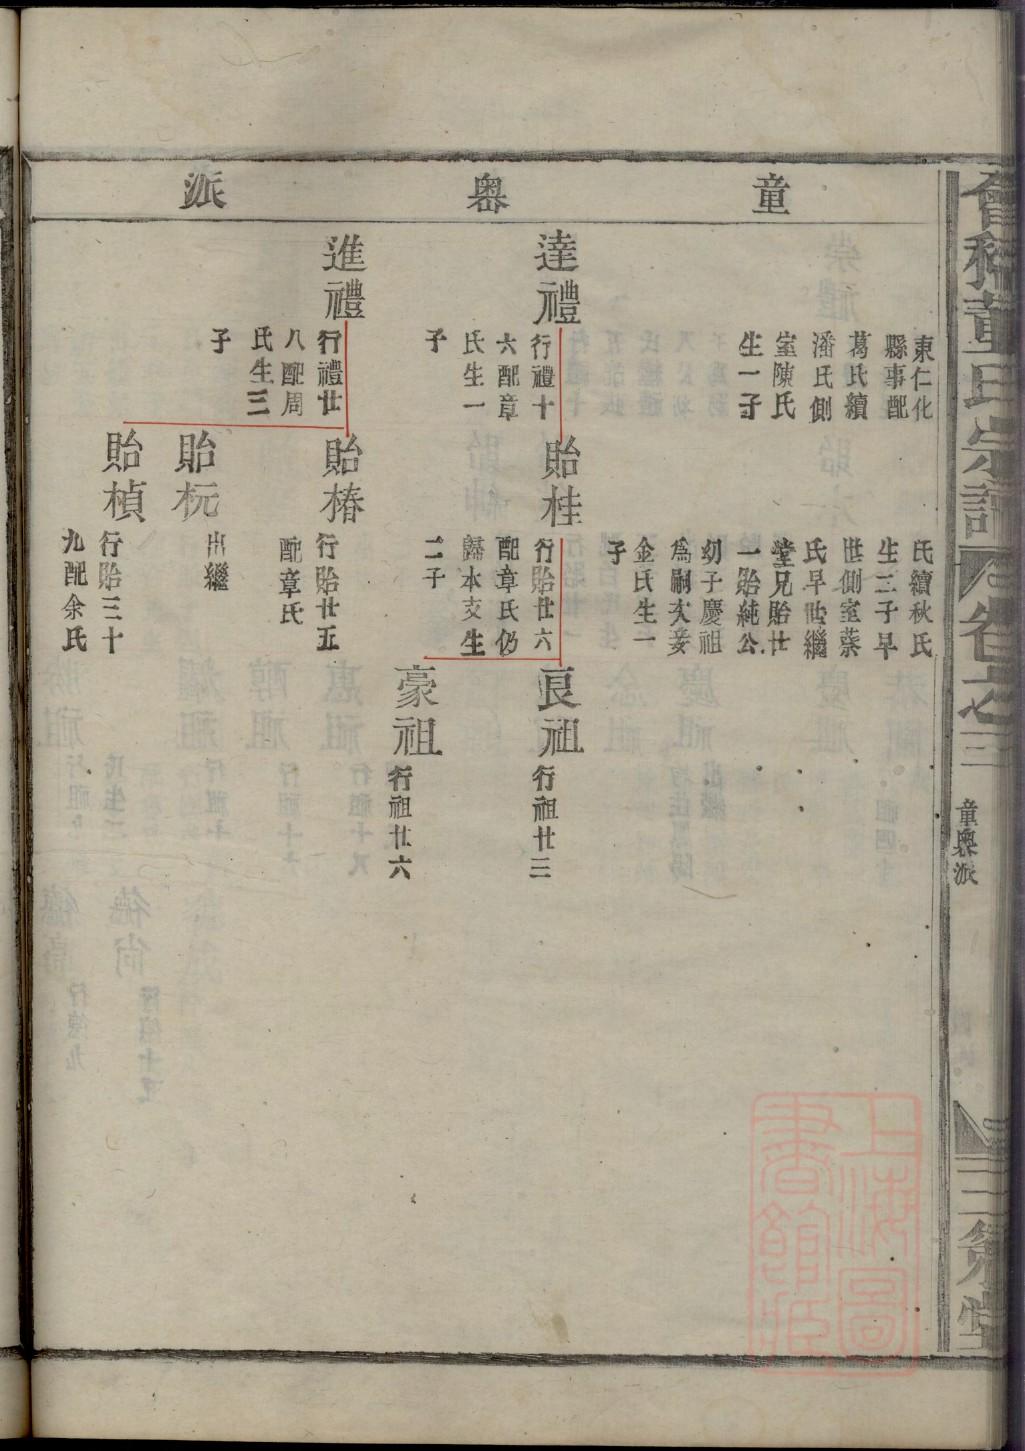 會稽董氏宗譜
卷之三
童嶴派
三策堂
童嶴派
東仁化
縣事配
葛氏續
潘氏側
室陳氏
生一子
達禮
行禮十
六配章
氏生一
子
進禮
行禮廿
八配周
氏生三
子
氏續秋氏
生二子早
世側室蔡
氏早世繼
堂兄貽廿
一貽純公
幼子慶祖
為嗣次妾
金氏生一
子
貽桂
行貽廿六
配章氏仍
歸本支生
二子
貽椿
行貽廿五
配章氏
貽杬
出繼
貽楨
行貽三十
九配余氏
良祖
行祖廿三
豪祖
行祖廿六
上海圖
書館臧